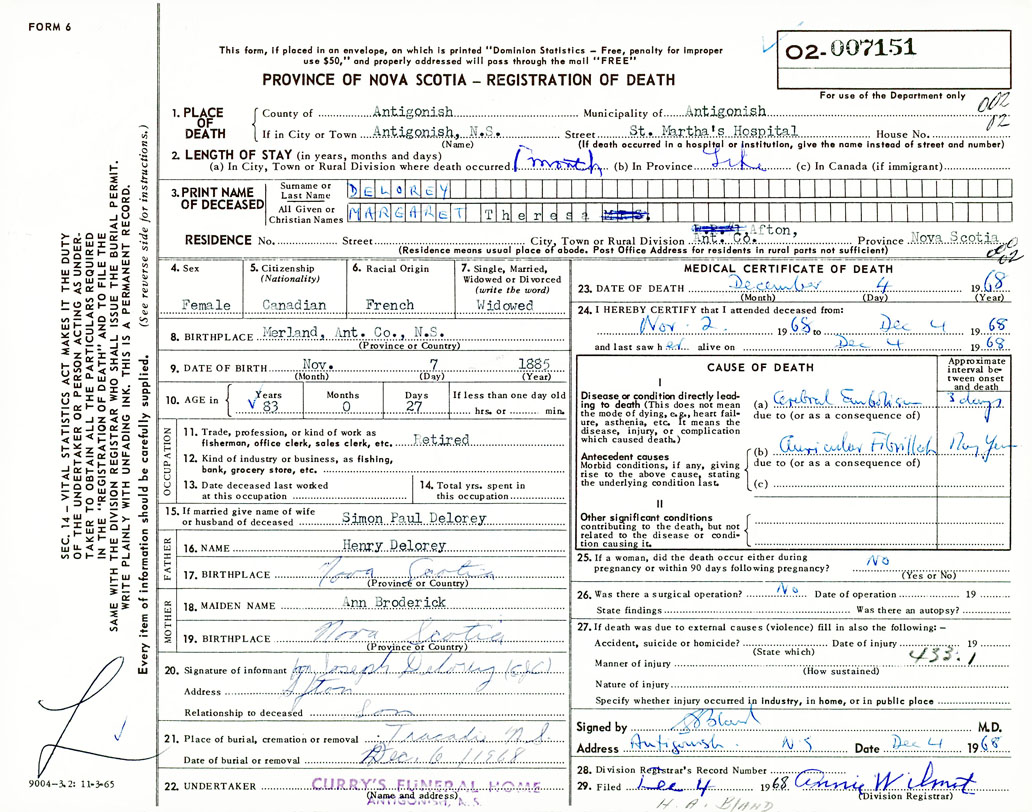 FORM 6
This form, if placed in an envelope, on which is printed "Dominion Statistics – Free, penalty for improper
use $50," and properly addressed will pass through the mail "FREE"
PROVINCE OF NOVA SCOTIA – REGISTRATION OF DEATH
02-007151
For use of the Department only
002
02
1. PLACE OF DEATH
County of Antigonish Municipality of Antigonish
If in City or Town Antigonish, N.S. Street St. Martha's Hospital House No.
(Name) (If death occurred in a hospital or institution, give the name instead of street and number)
2. LENGTH OF STAY (in years, months and days)
(a) In City, Town or Rural Division where death occurred 1 month (b) In Province Life (c) In Canada (if immigrant)
3. PRINT NAME OF DECEASED
Surname or Last Name DELOREY
All Given or Christian Names MARGARET Theresa
RESIDENCE No. Street City, Town or Rural Division Afton, Ant. Co. Province Nova Scotia
(Residence means usual place of abode. Post Office Address for residents in rural parts not sufficient)
002
4. Sex
Female
5. Citizenship (Nationality)
Canadian
6. Racial Origin
French
7. Single, Married, Widowed or Divorced (write the word)
Widowed
8. BIRTHPLACE Merland, Ant. Co., N.S.
(Province or Country)
9. DATE OF BIRTH Nov. 7 1885
(Month) (Day) (Year)
10. AGE in Years 83 Months 0 Days 27 If less than one day old hrs. or min.
OCCUPATION
11. Trade, profession, or kind of work as
fisherman, office clerk, sales clerk, etc. Retired
12. Kind of industry or business, as fishing,
bank, grocery store, etc.
13. Date deceased last worked
at this occupation
14. Total yrs. spent in
this occupation
15. If married give name of wife
or husband of deceased Simon Paul Delorey
FATHER
16. NAME Henry Delorey
17. BIRTHPLACE Nova Scotia
(Province or Country)
MOTHER
18. MAIDEN NAME Ann Broderick
19. BIRTHPLACE Nova Scotia
(Province or Country)
20. Signature of informant Joseph Delorey
Address Afton
Relationship to deceased Son
21. Place of burial, cremation or removal Tracadie N.S.
Date of burial or removal Dec. 6 / 1968
22. UNDERTAKER CURRY'S FUNERAL HOME
(Name and address)
ANTIGONISH, N.S.
MEDICAL CERTIFICATE OF DEATH
23. DATE OF DEATH December 4 1968
(Month) (Day) (Year)
24. I HEREBY CERTIFY that I attended deceased from:
Nov. 2 1968 to Dec 4 1968
and last saw her alive on Dec 4 1968
CAUSE OF DEATH
Approximate interval between onset and death
I
Disease or condition directly leading to death (This does not
mean the mode of dying, e.g., heart failure, asthenia, etc. It means the
disease, injury, or complication
which caused death.)
(a) Cerebral Embolism 3 days
due to (or as a consequence of)
Antecedent causes
Morbid conditions, if any, giving
rise to the above cause, stating
the underlying condition last.
(b) Auricular Fibrillat Many Years
due to (or as a consequence of)
(c)
II
Other significant conditions
contributing to the death, but not
related to the disease or condition causing it.
25. If a woman, did the death occur either during
pregnancy or within 90 days following pregnancy? No
(Yes or No)
26. Was there a surgical operation? No Date of operation 19
State findings Was there an autopsy?
27. If death was due to external causes (violence) fill in also the following: –
Accident, suicide or homicide? Date of injury 19
(State which)
433.1
Manner of injury
(How sustained)
Nature of injury
Specify whether injury occurred in Industry, in home, or in public place
Signed by Bland M.D.
Address Antigonish N S Date Dec 4 1968
28. Division Registrar's Record Number
29. Filed Dec 4 1968 Annie Wilmot
(Division Registrar)
H. A. BLAND
SEC. 14 – VITAL STATISTICS ACT MAKES IT THE DUTY
OF THE UNDERTAKER OR PERSON ACTING AS UNDER-
TAKER TO OBTAIN ALL THE PARTICULARS REQUIRED
IN THE "REGISTRATION OF DEATH" AND TO FILE THE
SAME WITH THE DIVISION REGISTRAR WHO SHALL ISSUE THE BURIAL PERMIT.
WRITE PLAINLY WITH UNFADING INK. THIS IS A PERMANENT RECORD.
Every item of information should be carefully supplied. (See reverse side for instructions.)
9004–3.2: 11-3-65